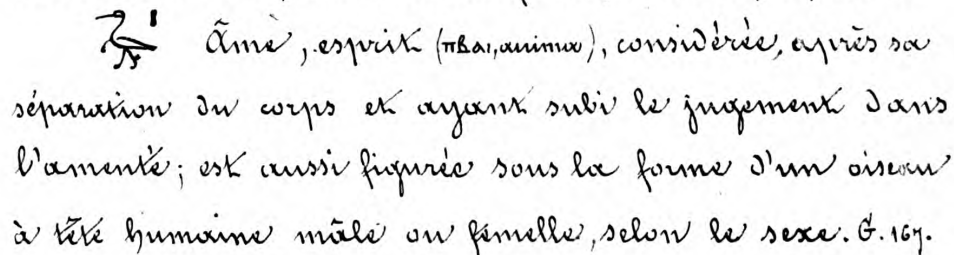 𓅡𓏤 Âme, esprit (ⲡⲃⲁⲓ, anima), considérée, après sa
séparation du corps et ayant subi le jugement dans
l'amenté; est aussi figurée sous la forme d'un oiseau
à tête humaine mâle ou femelle, selon le sexe. G. 167.